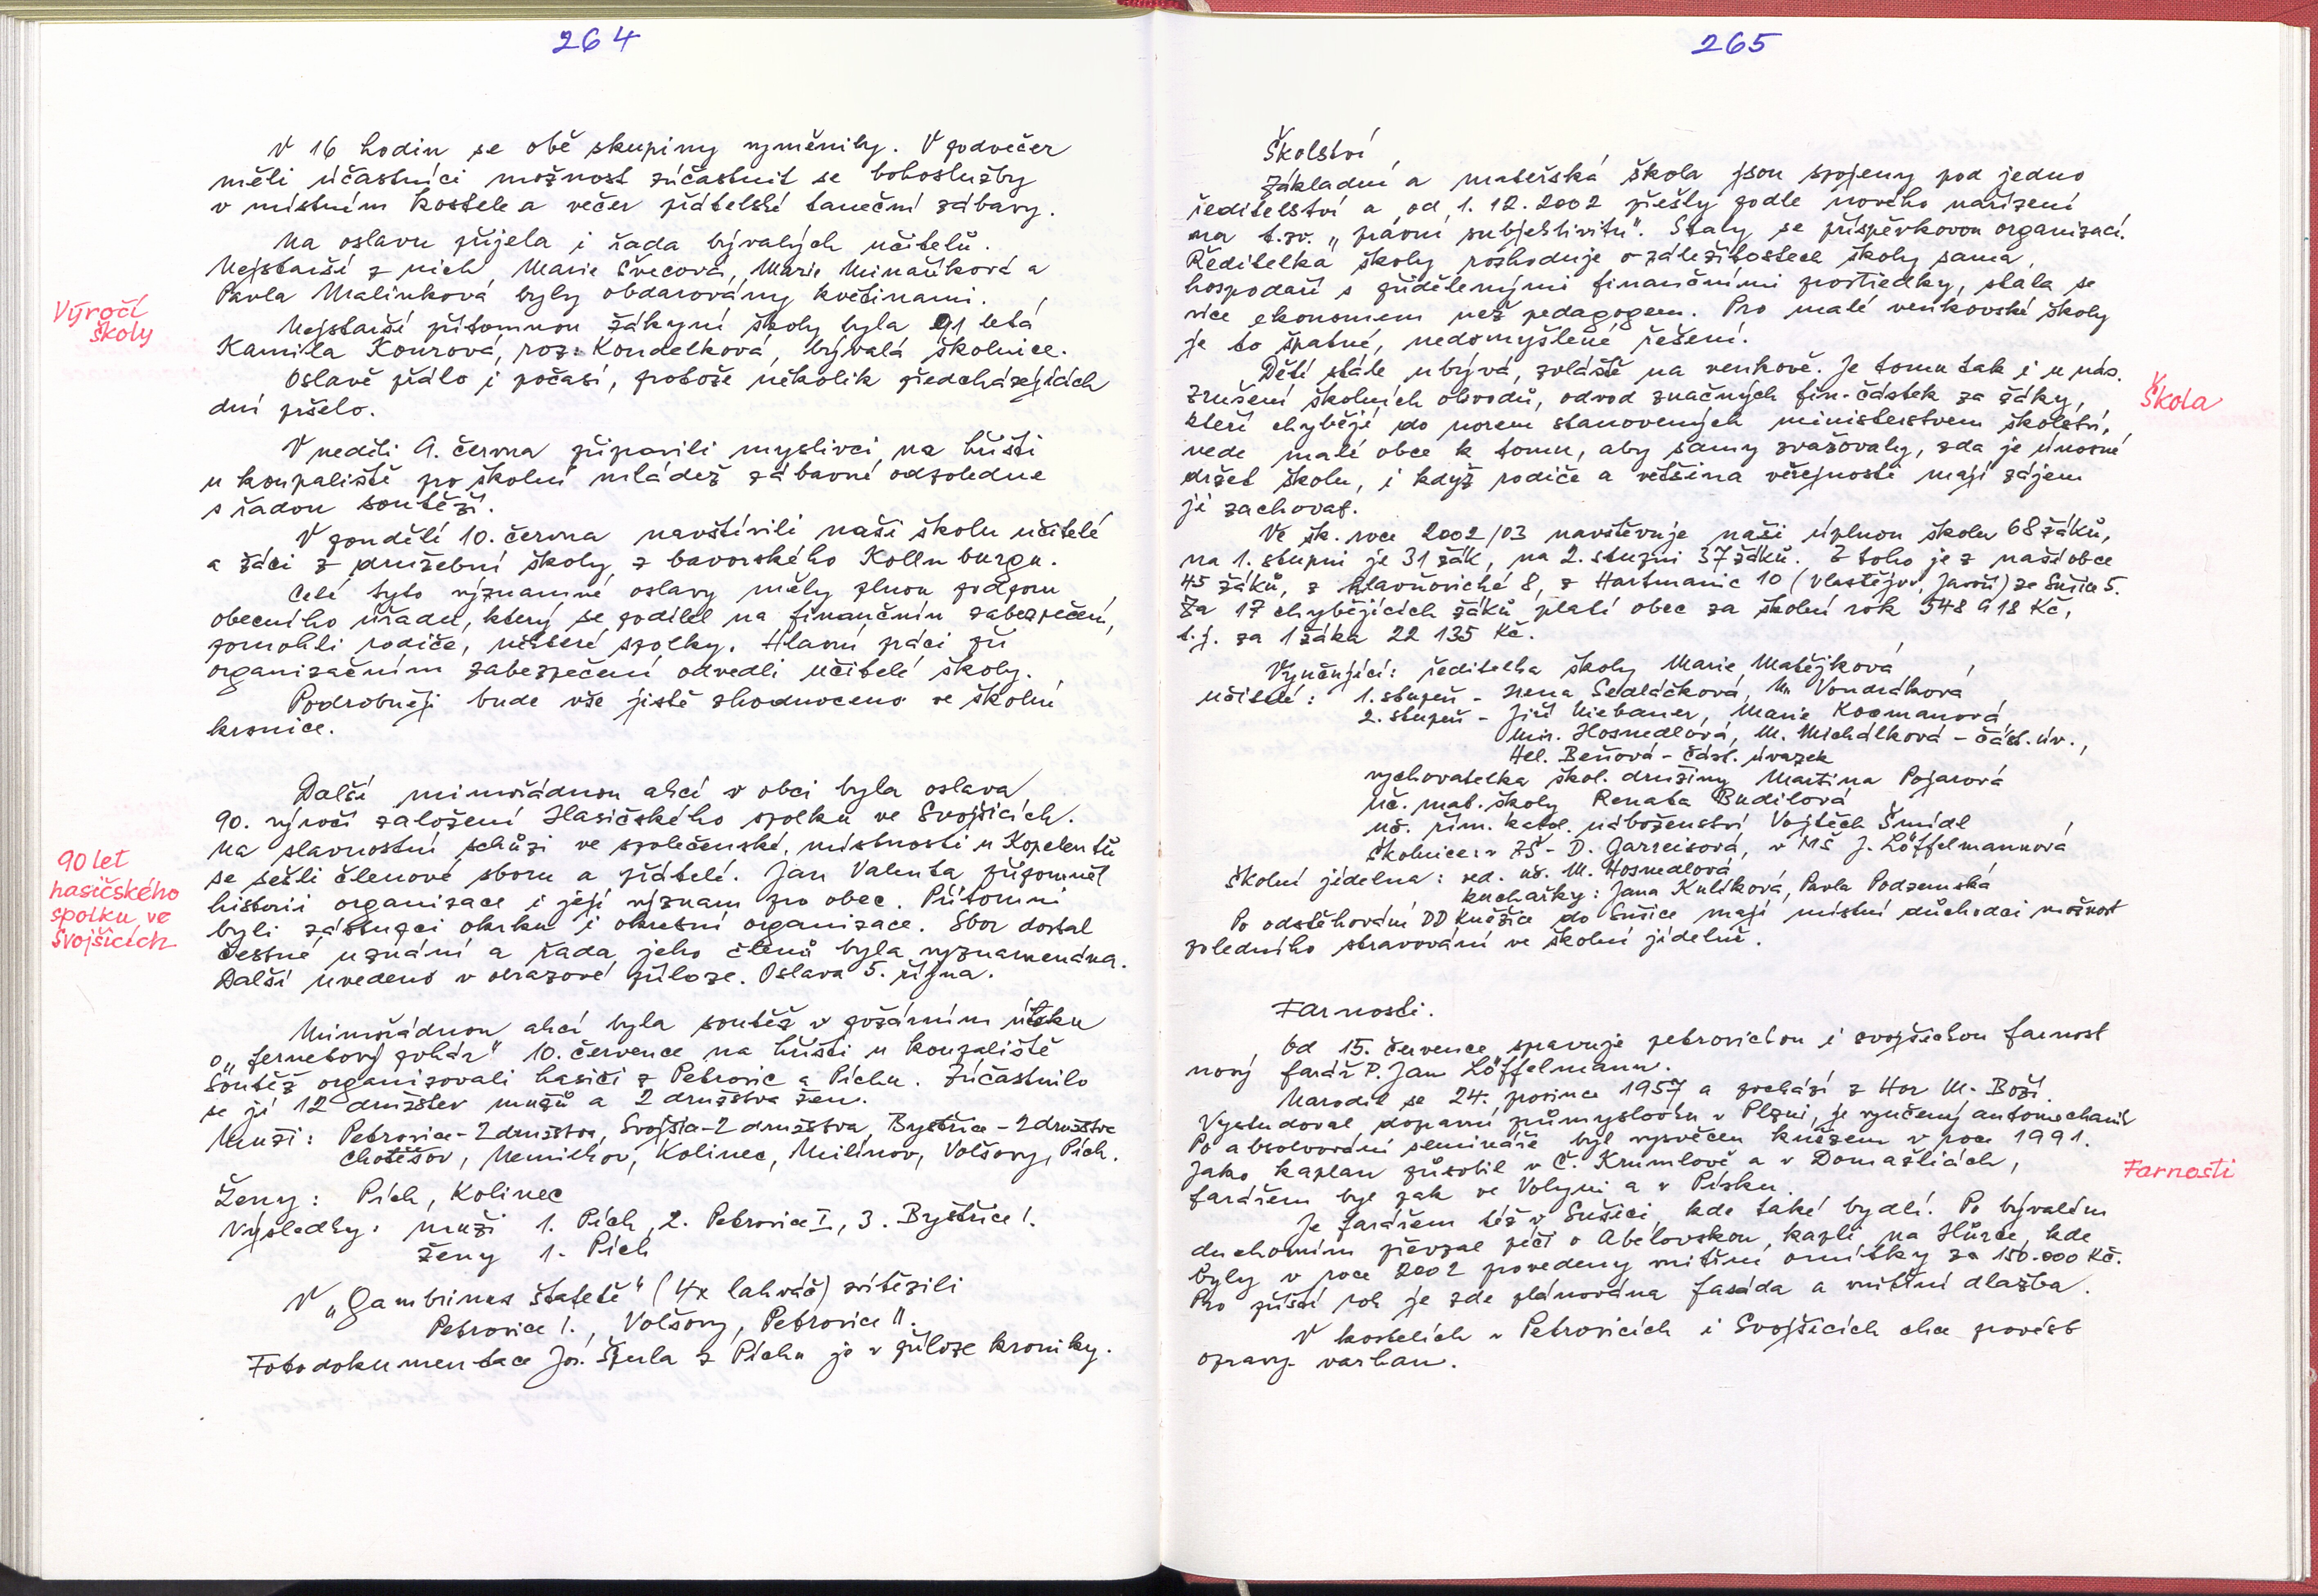 264
V 16 hodin se obě skupiny vyměnily. V podvečer
měli účastníci možnost zúčastnit se bohoslužby
v místním kostele a večer přátelské taneční zábavy.
Na oslavu přijela i řada bývalých učitelů.
Nejstarší z nich, Marie Švecová, Marie Minaříková a
Pavla Malinková byly obdarovány květinami.
Výročí
školy
Nejstarší přítomnou žákyní školy byla 91 letá
Kamila Kourová, roz. Kondelková, bývalá školnice.
Oslavě přálo i počasí, protože několik předcházejících
dní pršelo.
V neděli 9. června připravili myslivci na hřišti
u koupaliště pro školní mládež zábavné odpoledne
s řadou soutěží.
V pondělí 10. června navštívili naši školu učitelé
a žáci z družební školy z bavorského Kollnburgu.
Celé tyto významné oslavy měly plnou podporu
obecního úřadu, který se podílel na finančním zabezpečení,
pomohli rodiče, některé spolky. Hlavní práci při
organizačním zabezpečení odvedli učitelé školy.
Podrobněji bude vše jistě zhodnoceno ve školní
kronice.
Další mimořádnou akcí v obci byla oslava
90. výročí založení Hasičského spolku ve Svojšicích.
Na slavnostní schůzi ve společenské místnosti u Kopelentů
90 let
hasičského
spolku ve
Svojšicích
se sešli členové sboru a přátelé. Jan Valenta připomněl
historii organizace i její význam pro obec. Přítomni
byli zástupci okrsku i okresní organizace. Sbor dostal
čestné uznání a řada jeho členů byla vyznamenána.
Další uvedeno v obrazové příloze. Oslava 5. října.
Mimořádnou akcí byla soutěž v požárním útoku
o „fernetový pohár" 10. července na hřišti u koupaliště
Soutěž organizovali hasiči z Petrovic a Píchu. Zúčastnilo
se jí 12 družstev mužů a 2 družstva žen.
Muži: Petrovice - 2 družstva, Svojšice - 2 družstva, Bystřice - 2 družstva
Chotěšov, Nemilkov, Kolinec, Milínov, Volšovy, Pích.
Ženy: Pích, Kolinec
Výsledky: muži 1. Pích, 2. Petrovice I, 3. Bystřice I.
ženy 1. Pích
V „Gambrinus štafetě" (4x lahváč) zvítězili
Petrovice I., Volšovy, Petrovice II.
Fotodokumentace Jos. Špirla z Píchu je v příloze kroniky.
265
Školství
Základní a mateřská škola jsou spojeny pod jedno
ředitelství a od 1. 12. 2002 přešly podle nového nařízení
na t.zv. „právní subjektivitu". Staly se příspěvkovou organizací.
Ředitelka školy rozhoduje o záležitostech školy sama,
hospodaří s přidělenými finančními prostředky, stala se
více ekonomem než pedagogem. Pro malé venkovské školy
je to špatné, nedomyšlené řešení.
Dětí stále ubývá, zvláště na venkově. Je tomu tak i u nás.
Škola
Zrušení školních obvodů, odvod značných fin. částek za žáky,
kteří chybějí do norem stanovených ministerstvem školství,
vede malé obce k tomu, aby samy zvažovaly, zda je únosné
držet školu, i když rodiče a většina veřejnosti mají zájem
ji zachovat.
Ve šk. roce 2002/03 navštěvuje naši úplnou školu 68 žáků,
na 1. stupni je 31 žák, na 2. stupni 37 žáků. Z toho je z naší obce
45 žáků, z Hlavňovické 8, z Hartmanic 10 (Vlastějov, Javoří) ze Sušice 5.
Za 17 chybějících žáků platí obec za školní rok 548 918 Kč,
t.j. za 1 žáka 22 135 Kč.
Vyučující: ředitelka školy Marie Matějková
učitelé: 1. stupeň - Irena Sedláčková, M. Vondráková
2. stupeň - Jiří Niebauer, Marie Kocmanová,
Mir. Hosnedlová, M. Michálková - část. úv.,
Hel. Beňová - část. úvazek
vychovatelka škol. družiny Martina Pojarová
uč. mat. školy Renata Budilová
uč. řím. katol. náboženství Vojtěch Šmídl
školnice: v ZŠ - D. Garreisová, v MŠ J. Löffelmannová
Školní jídelna: ved. uč. M. Hosnedlová
kuchařky: Jana Kulíková, Pavla Podzemská
Po odstěhování DD Kněžice do Sušice mají místní důchodci možnost
poledního stravování ve školní jídelně.
Farnosti.
Od 15. července spravuje petrovickou i svojšickou farnost
nový farář P. Jan Löffelmann.
Narodil se 24. prosince 1957 a pochází z Hor M. Boží.
Vystudoval dopravní průmyslovku v Plzni, je vyučený automechanik
Po absolvování semináře byl vysvěcen knězem v roce 1991.
Jako kaplan působil v Č. Krumlově a v Domažlicích,
Farnosti
farářem byl pak ve Volyni a v Písku.
Je farářem též v Sušici, kde také bydlí. Po bývalém
duchovním převzal péči o Abelovskou kapli na Hůrce, kde
byly v roce 2002 provedeny vnitřní omítky za 150.000 Kč.
Pro příští rok je zde plánována fasáda a vnitřní dlažba.
V kostelích v Petrovicích i Svojšicích chce provést
opravy varhan.